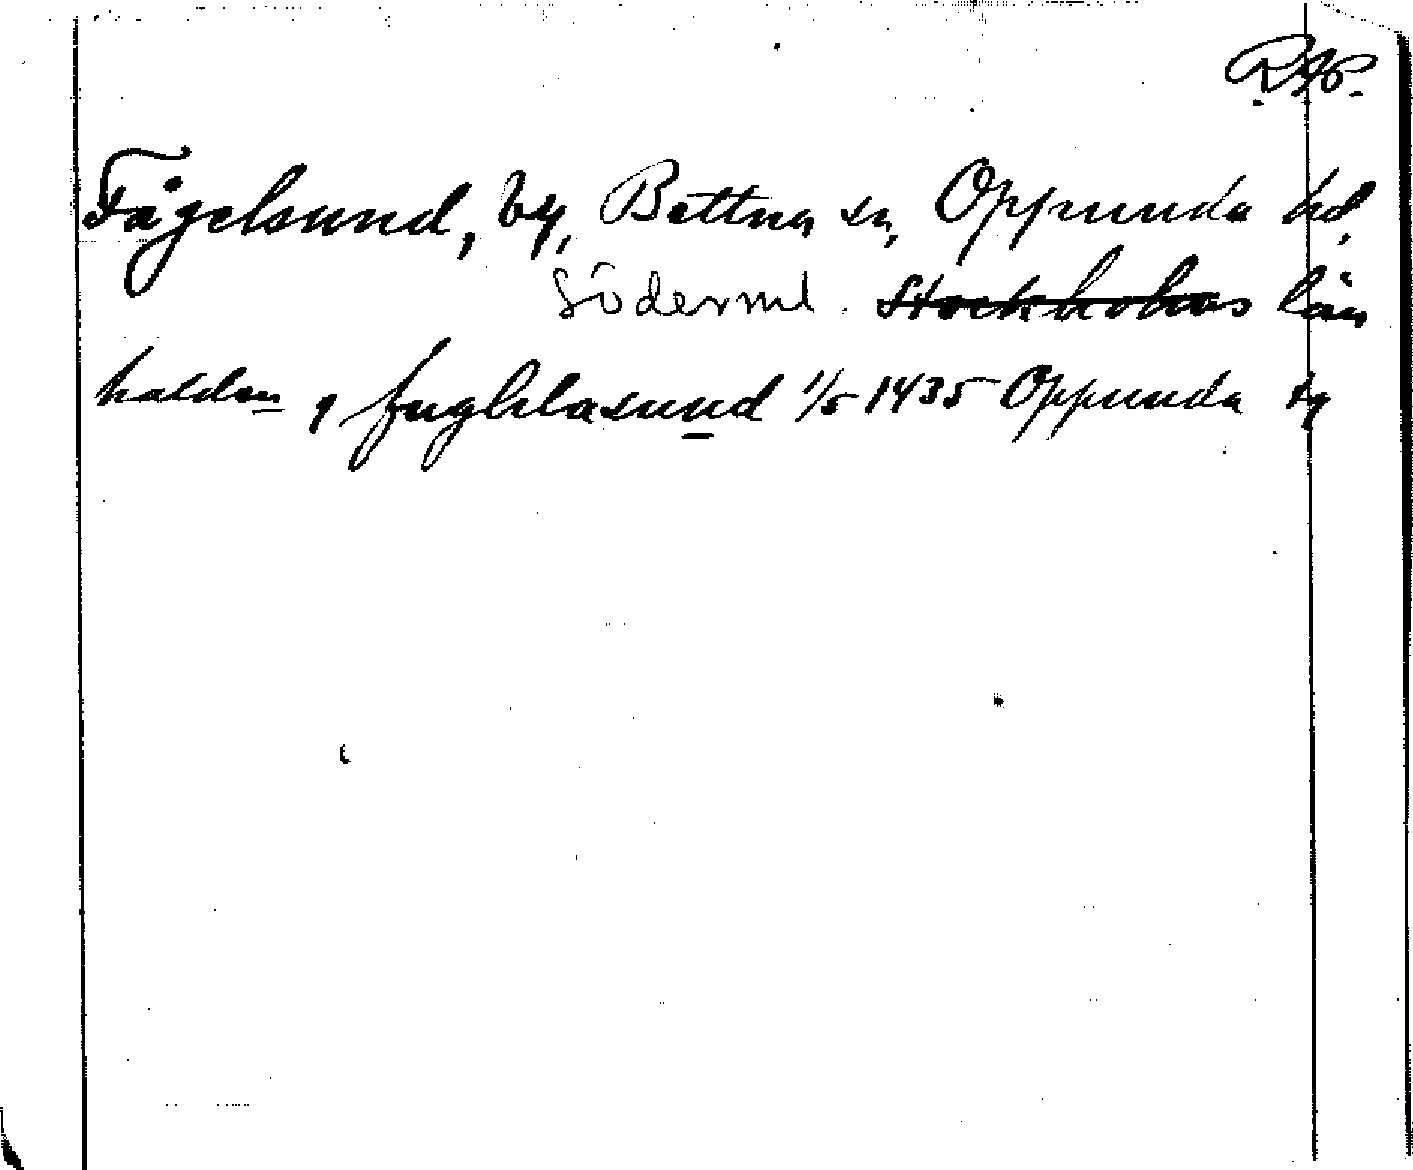 Fågelsund, by, Bettna sn, Oppunda hd,
Söderml. Stockholms län
halden j fughlasund 1/5 1435 Oppunda